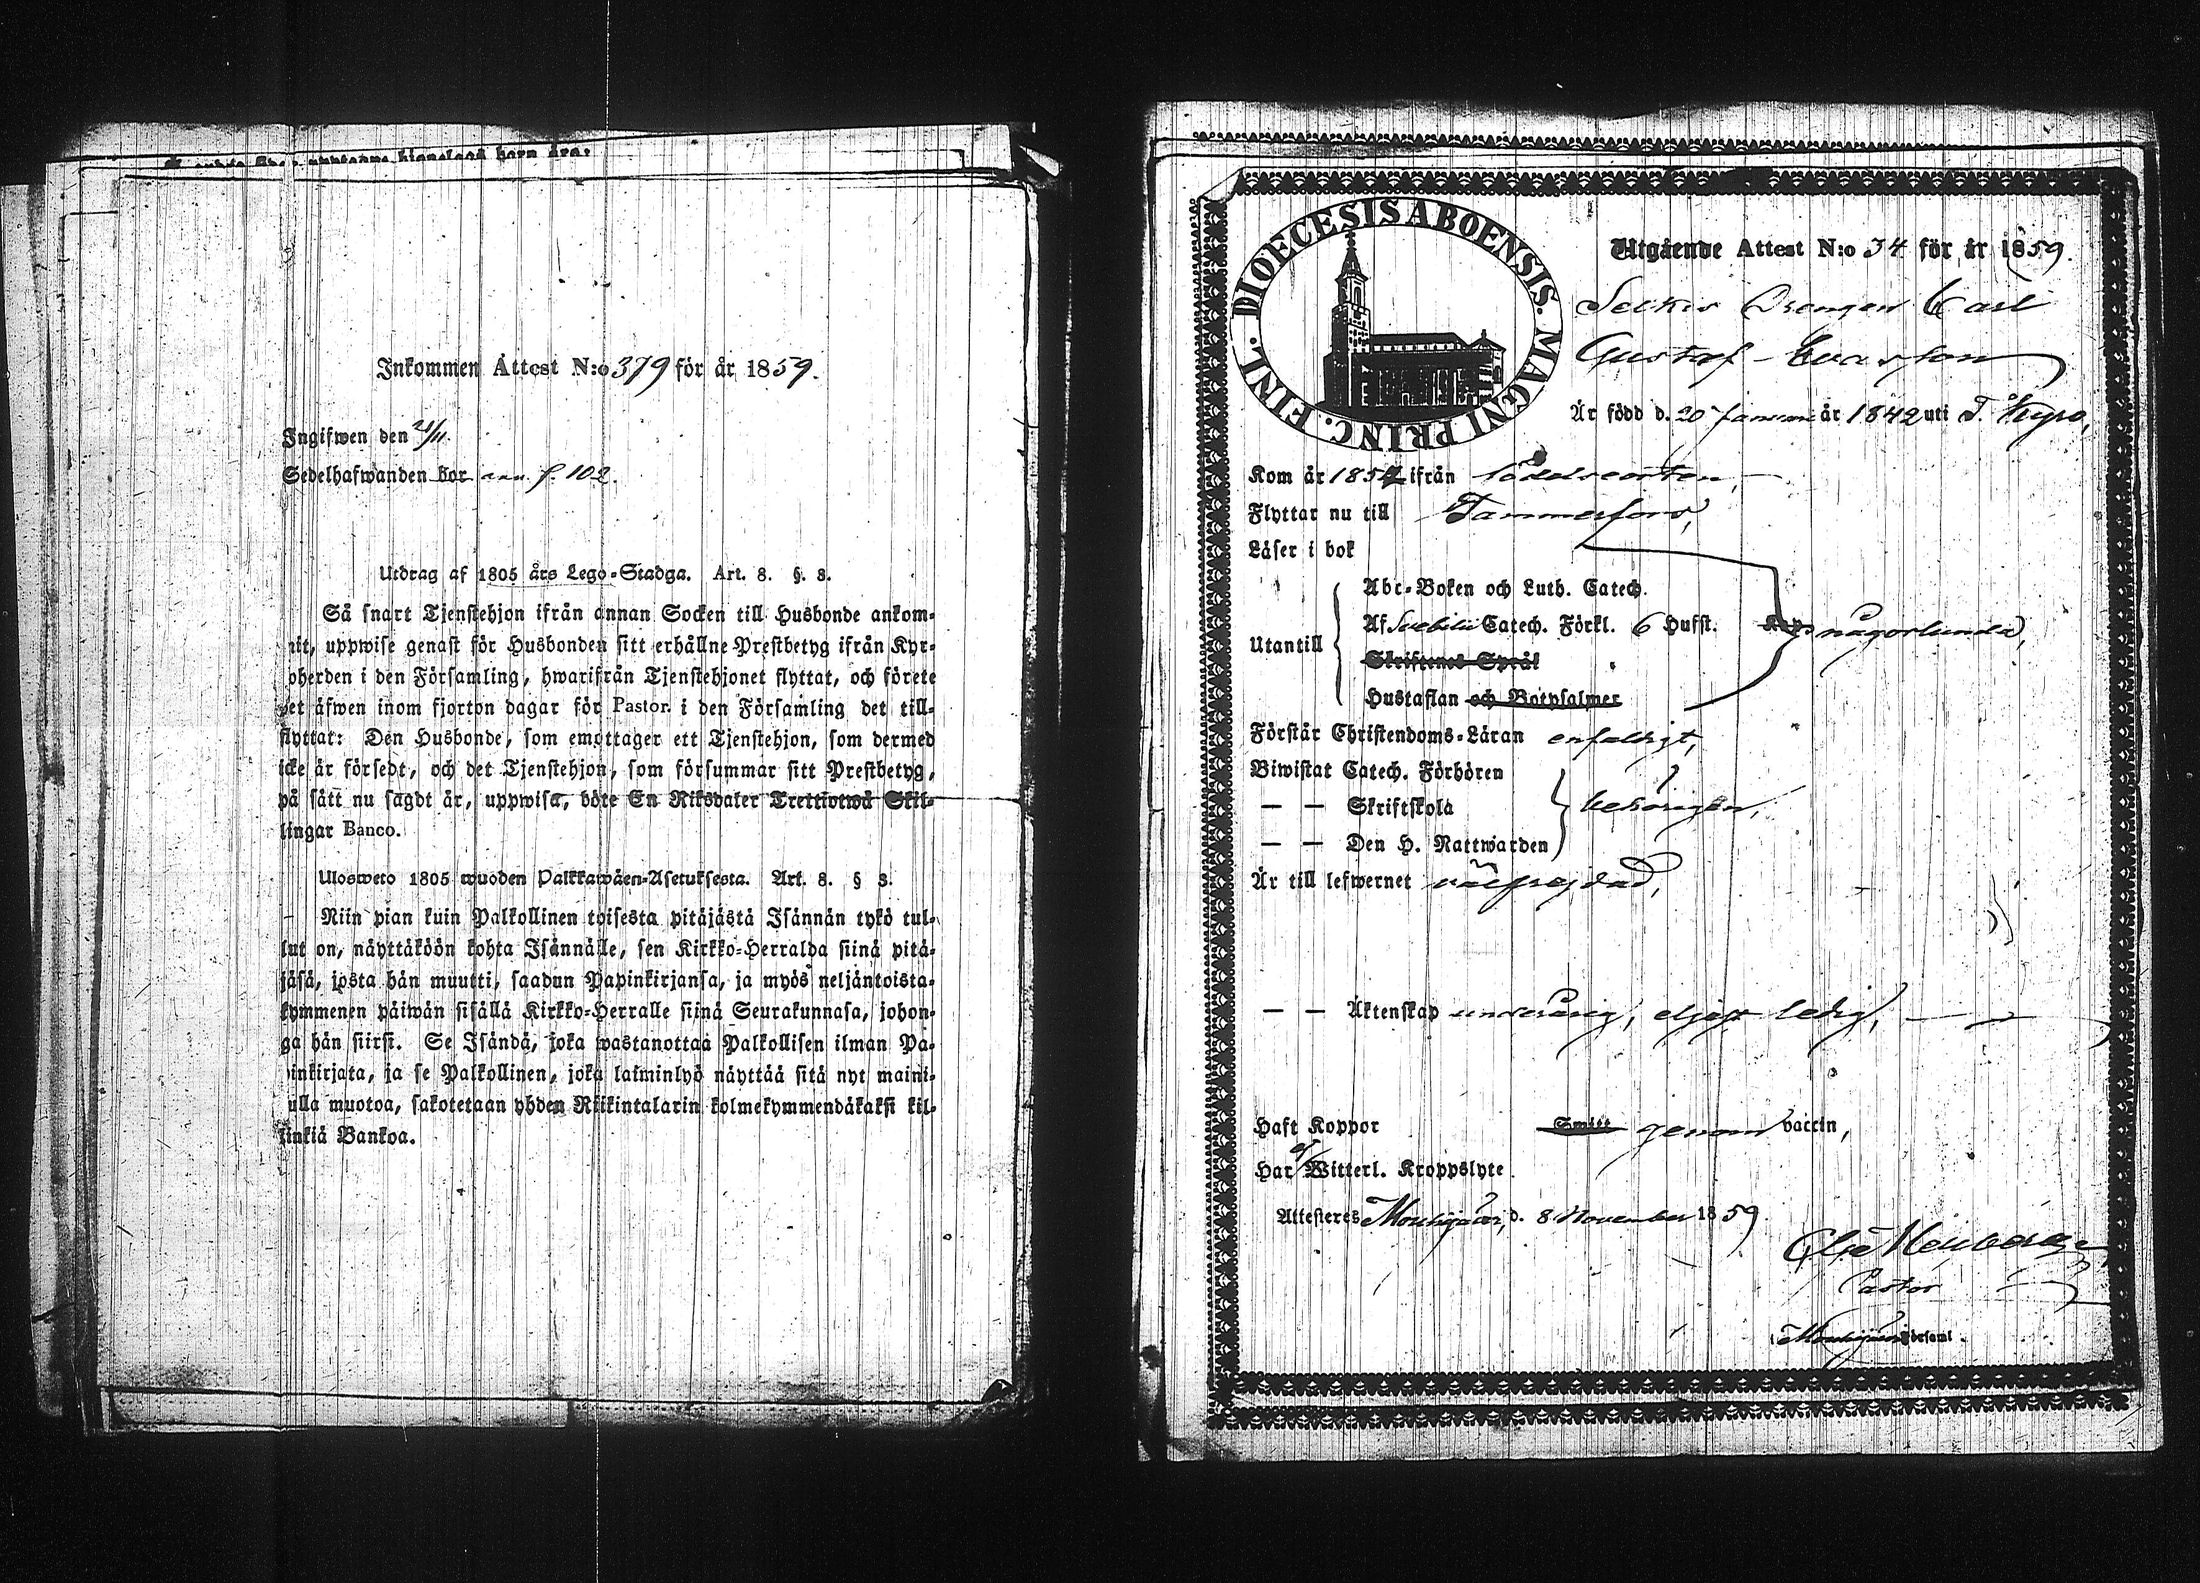 Inkommen Attest N:o 379 för år 1859.
Ingifwen den 21/11.
Sedelhafwanden bor f. 102.
Utdrag af 1805 års Lego-Stadga. Art. 8. §. 8.
Så snart Tjenstehjon ifrån annan Socken till Husbonde ankom-
nit, uppwise genast för Husbonden sitt erhållne Prestbetyg ifrån Kyr-
oherden i den Församling, hwarifrån Tjenstehjonet flyttat, och förete
et äfwen inom fjorton dagar för Pastor i den Församling det till-
flyttat: Den Husbonde, som emottager ett Tjenstehjon, som dermed
icke är försedt, och det Tjenstehjon, som försummar sitt Prestbetyg,
på sätt nu sagdt är, uppwisa, böte En Riksdaler Trettiotwå Skil-
lingar Banco.
Ulosweto 1805 wuoden Palkkawäen-Asetuksesta. Art. 8. § 8.
Niin pian kuin Palkollinen toisesta pitäjästä Isännän tykö tul-
lut on, näyttäköön kohta Isännälle, sen Kirkko-Herralda siinä pitä-
jäsä, josta hän muutti, saadun Papinkirjansa, ja myös neljäntoista-
kymmenen päiwän sisällä Kirkko-Herralle siinä Seurakunnasa, johon-
ga hän siirsi. Se Isändä, joka wastanottaa Palkollisen ilman Pa-
inkirjata, ja se Palkollinen, joka laiminlyö näyttää sitä nyt maini-
ulla muotoa, sakotetaan yhden Riikintalarin kolmekymmendäkaksi kil-
linkiä Bankoa.
DIOECESIS ABOENSIS. MAGNI PRINC. FINL.
Utgående Attest N:o 34 för år 1859.
Drengen Carl
Gustaf Evasson
Är född d. 20 Januari år 1842 uti T. Kyro,
Kom år 1854 ifrån födelseorten,
Flyttar nu till Tammerfors,
Läser i bok
Abc-Boken och Luth. Catech.
Utantill Af Svebilii Catech. Förkl. 6 Hufst. någorlunda,
Skriftenes Språk
Hustaflan och Botpsalmer
Förstår Christendoms-Läran enfaldigt,
Biwistat Catech. Förhören
— — Skriftskola behörigen,
— — Den H. Nattwarden
Är till lefwernet välfrejdad,
— — Äktenskap underårig, eljest ledig,
Haft Koppor Smitt genom vaccin,
Har ej Witterl. Kroppslyte
Attesteres Mouhijärvi, d. 8 November 1859
Pastor
i Mouhijärvi Församl.